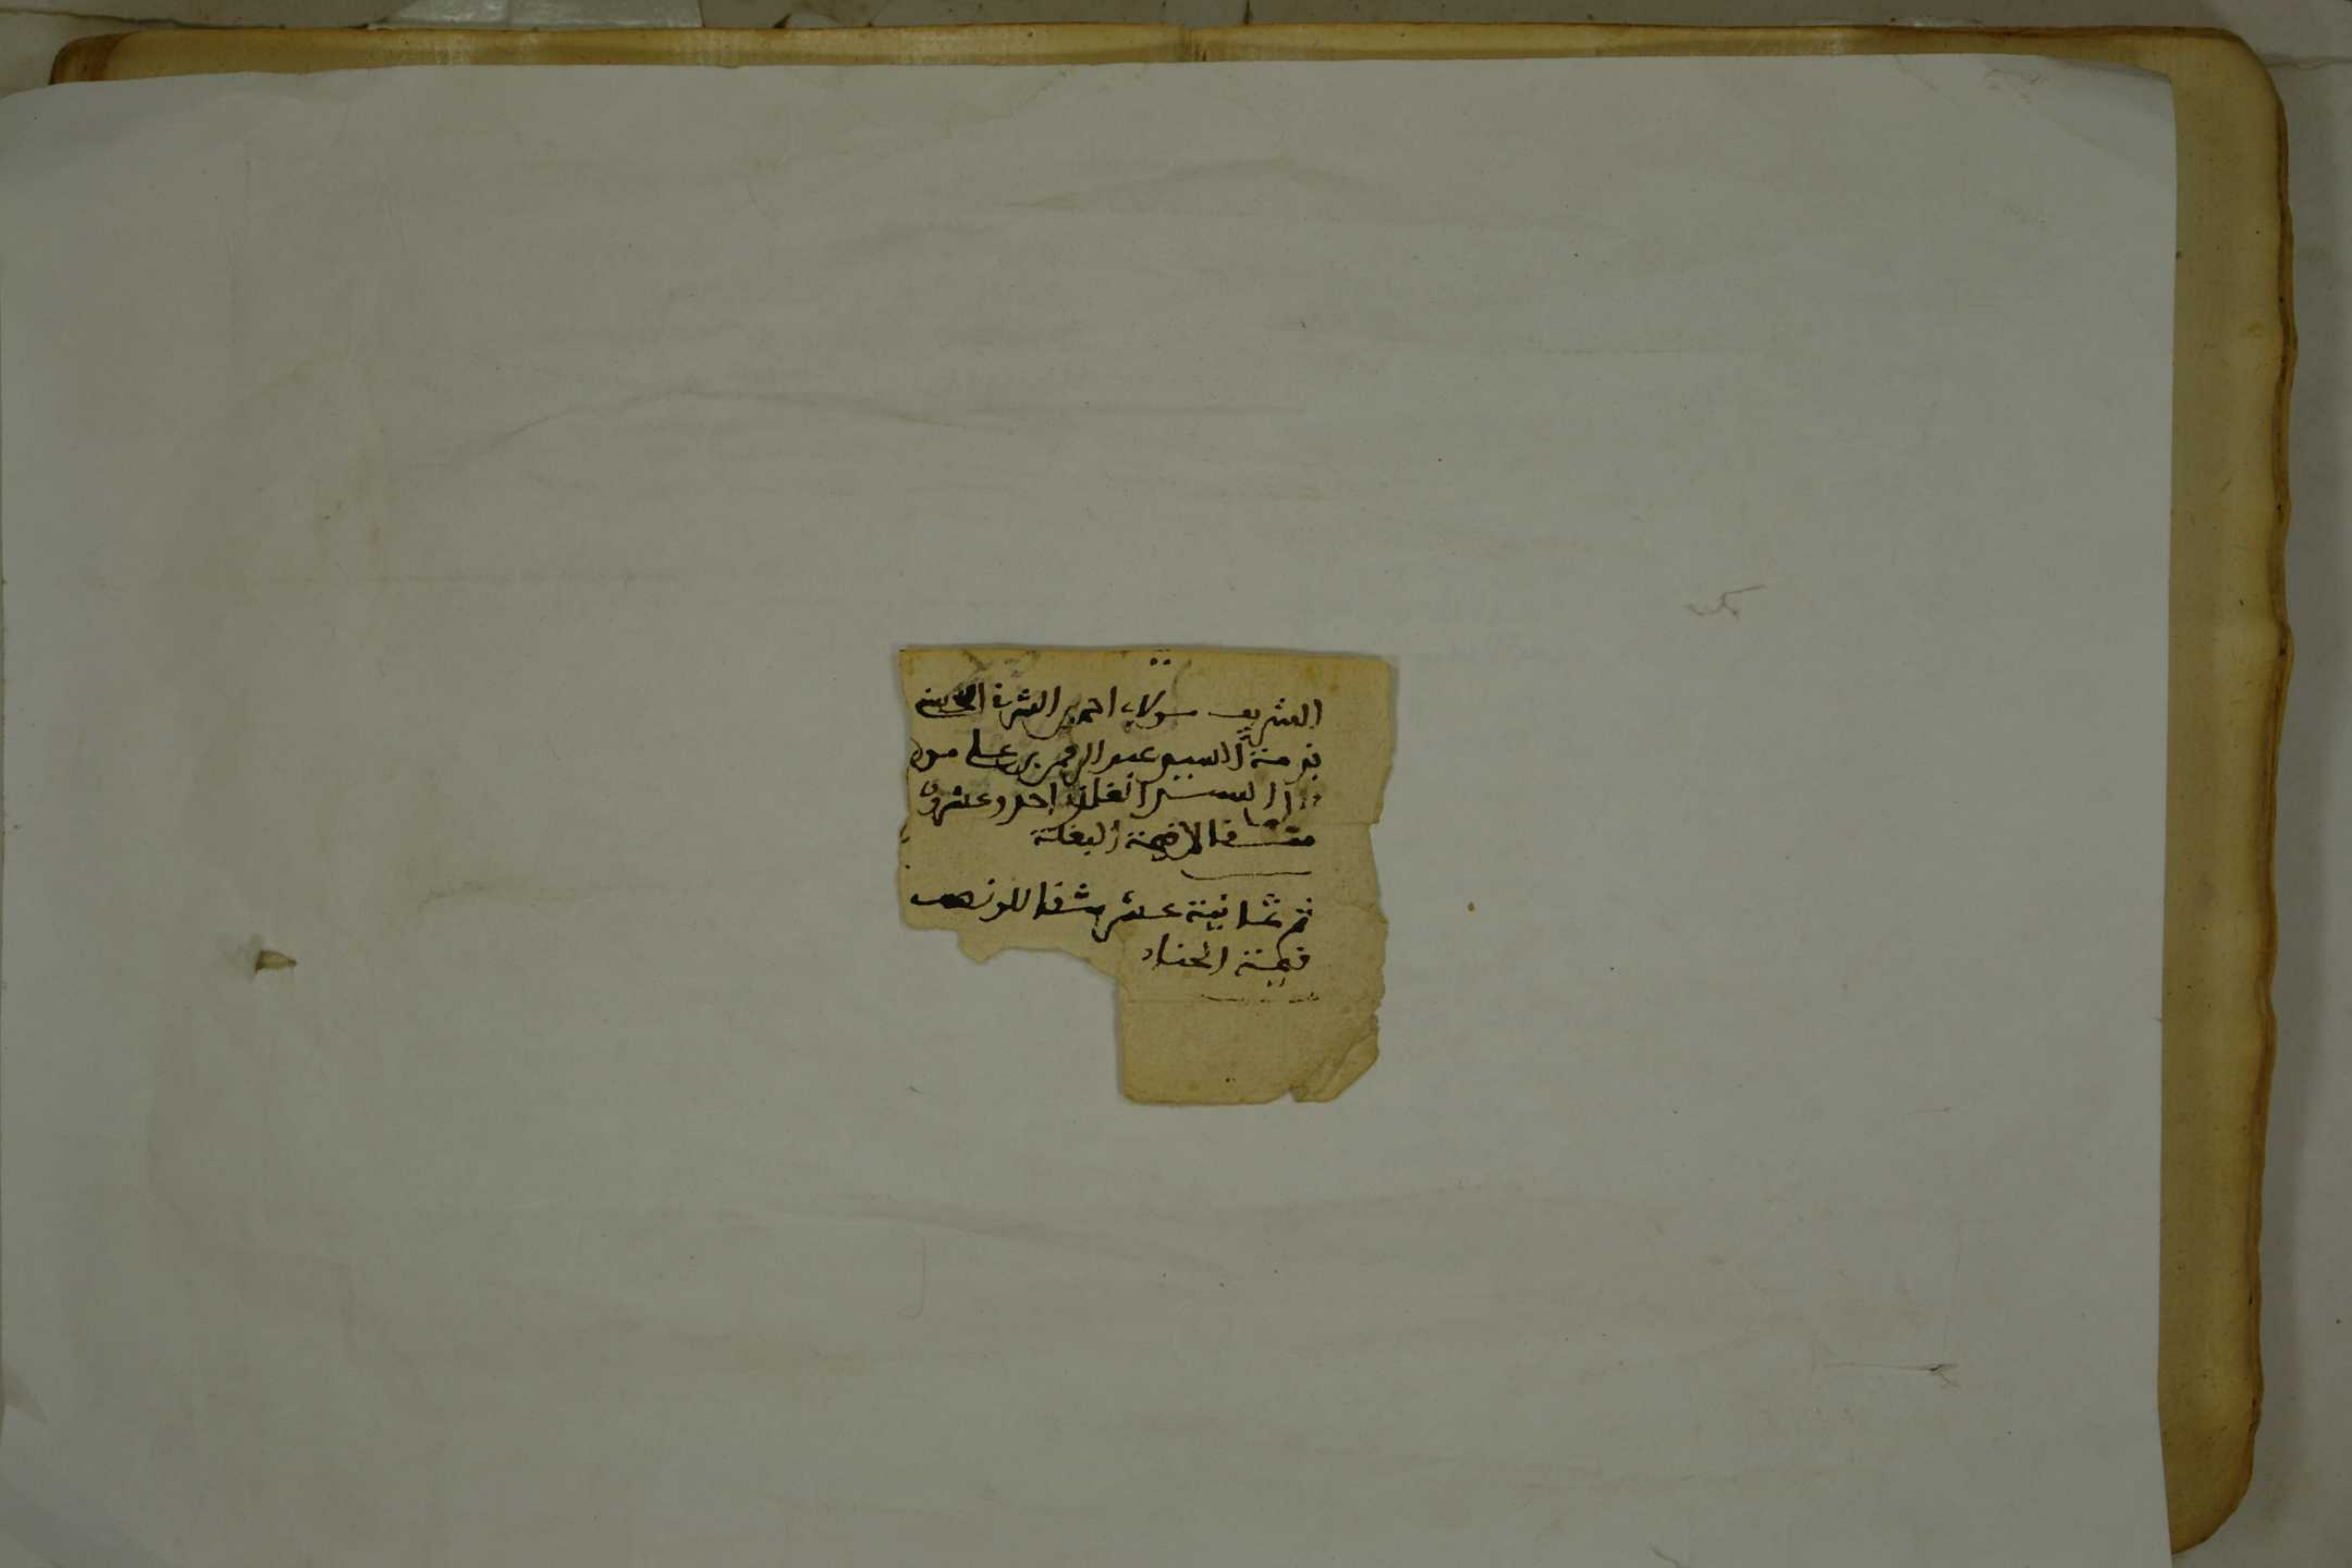 الشريف مولاي احمد بن الشريف الحسني
بذمة السيد عبد الرحمن بن علي مول
احد وعشرون
مثقالا قيمة البغلة
ثم ثمانية عشر مثقال للذهب
قيمة الحناء